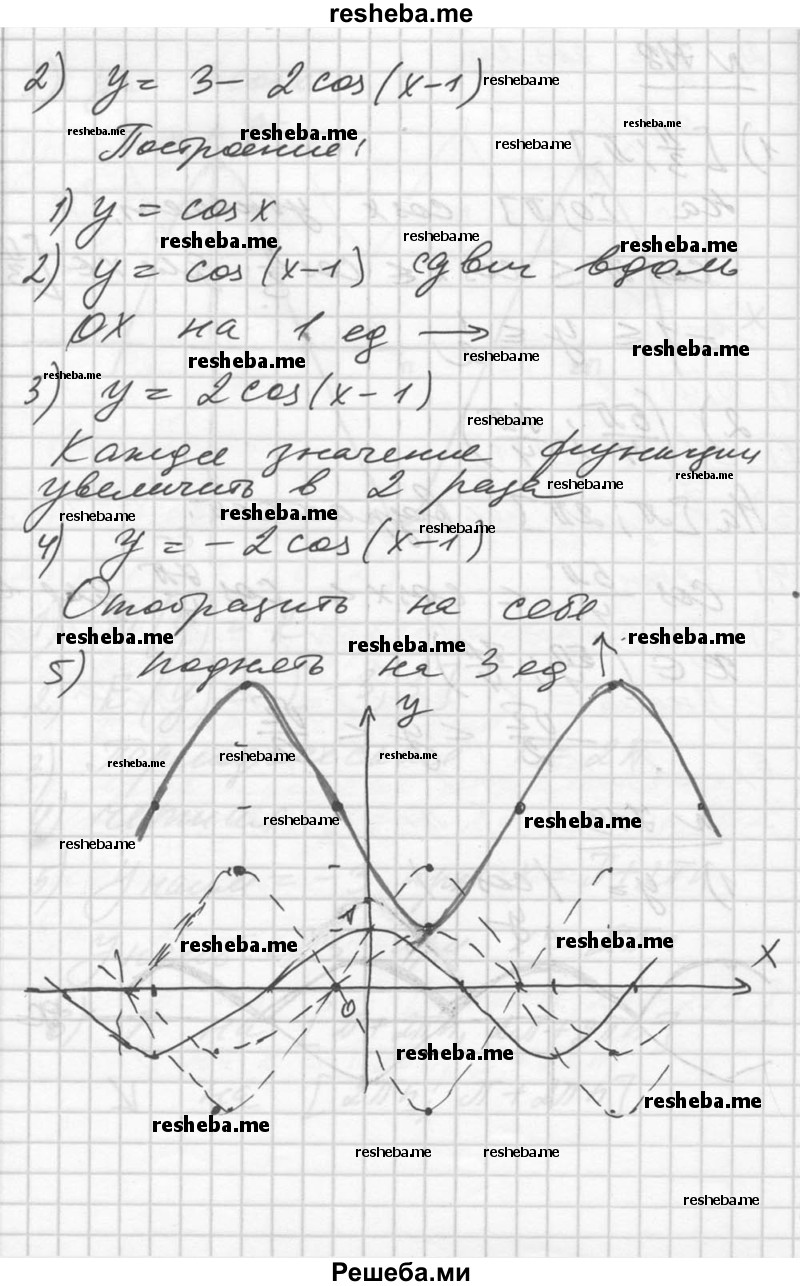 resheba.me
2) y = 3 - 2 cos (x-1) resheba.me
resheba.me resheba.me resheba.me
Построение: resheba.me
1) y = cos x
resheba.me resheba.me resheba.me
2) y = cos (x-1) сдвиг вдоль
OX на 1 ед →
resheba.me resheba.me resheba.me
resheba.me
3) y = 2 cos (x-1)
resheba.me
Каждое значение функции
увеличить в 2 раза resheba.me resheba.me
resheba.me resheba.me resheba.me
4) y = -2 cos (x-1)
Отобразить на себе
resheba.me resheba.me resheba.me
5) поднять на 3 ед ↑
y
resheba.me resheba.me resheba.me
resheba.me resheba.me
resheba.me
1
resheba.me resheba.me
x
0
resheba.me
resheba.me
resheba.me
resheba.me resheba.me
resheba.me
Решеба.ми